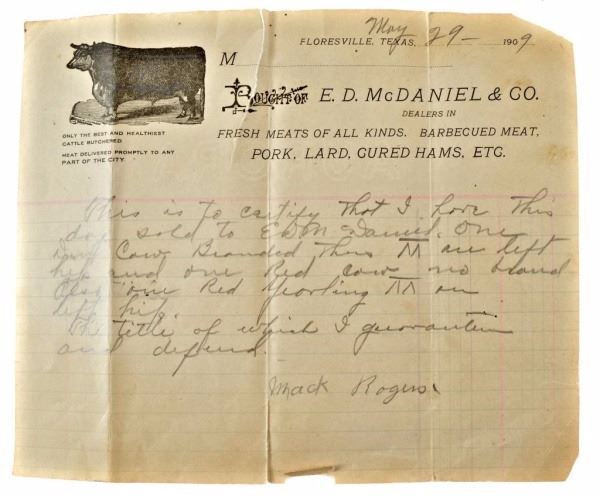 May 29- 1909
FLORESVILLE, TEXAS,
M
BOUGHT OF E. D. McDANIEL & CO.
DEALERS IN
FRESH MEATS OF ALL KINDS. BARBECUED MEAT,
PORK, LARD, CURED HAMS, ETC.
ONLY THE BEST AND HEALTHIEST
CATTLE BUTCHERED.
MEAT DELIVERED PROMPTLY TO ANY
PART OF THE CITY.
This is to certify that I have this
day sold to E D McDaniel. One
Cow Branded Thus on left
hip and one Red cow no brand
Also one Red Yearling on
left hip.
The title of which I guarantee
and defend.
Mack Rogers